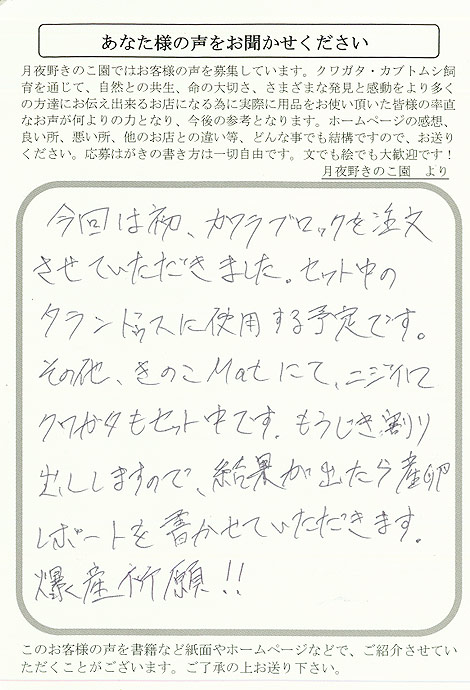 あなた様の声をお聞かせください
月夜野きのこ園ではお客様の声を募集しています。クワガタ・カブトムシ飼
育を通じて、自然との共生、命の大切さ、さまざまな発見と感動をより多く
の方達にお伝え出来るお店になる為に実際に用品をお使い頂いた皆様の率直
なお声が何よりの力となり、今後の参考となります。ホームページの感想、
良い所、悪い所、他のお店との違い等、どんな事でも結構ですので、お送り
ください。応募はがきの書き方は一切自由です。文でも絵でも大歓迎です！
月夜野きのこ園　より
今回は初、カワラブロックを注文
させていただきました。セット中の
タランドゥスに使用する予定です。
その他、きのこMatにて、ニジイロ
クワガタもセット中です。もうじき割り
出ししますので、結果が出たら産卵
レポートを書かせていただきます。
爆産祈願!!
このお客様の声を書籍など紙面やホームページなどで、ご紹介させてい
ただくことがございます。ご了承の上お送り下さい。